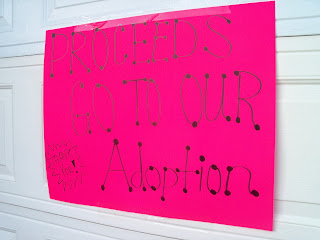 PROCEEDS
GO TO OUR
Adoption